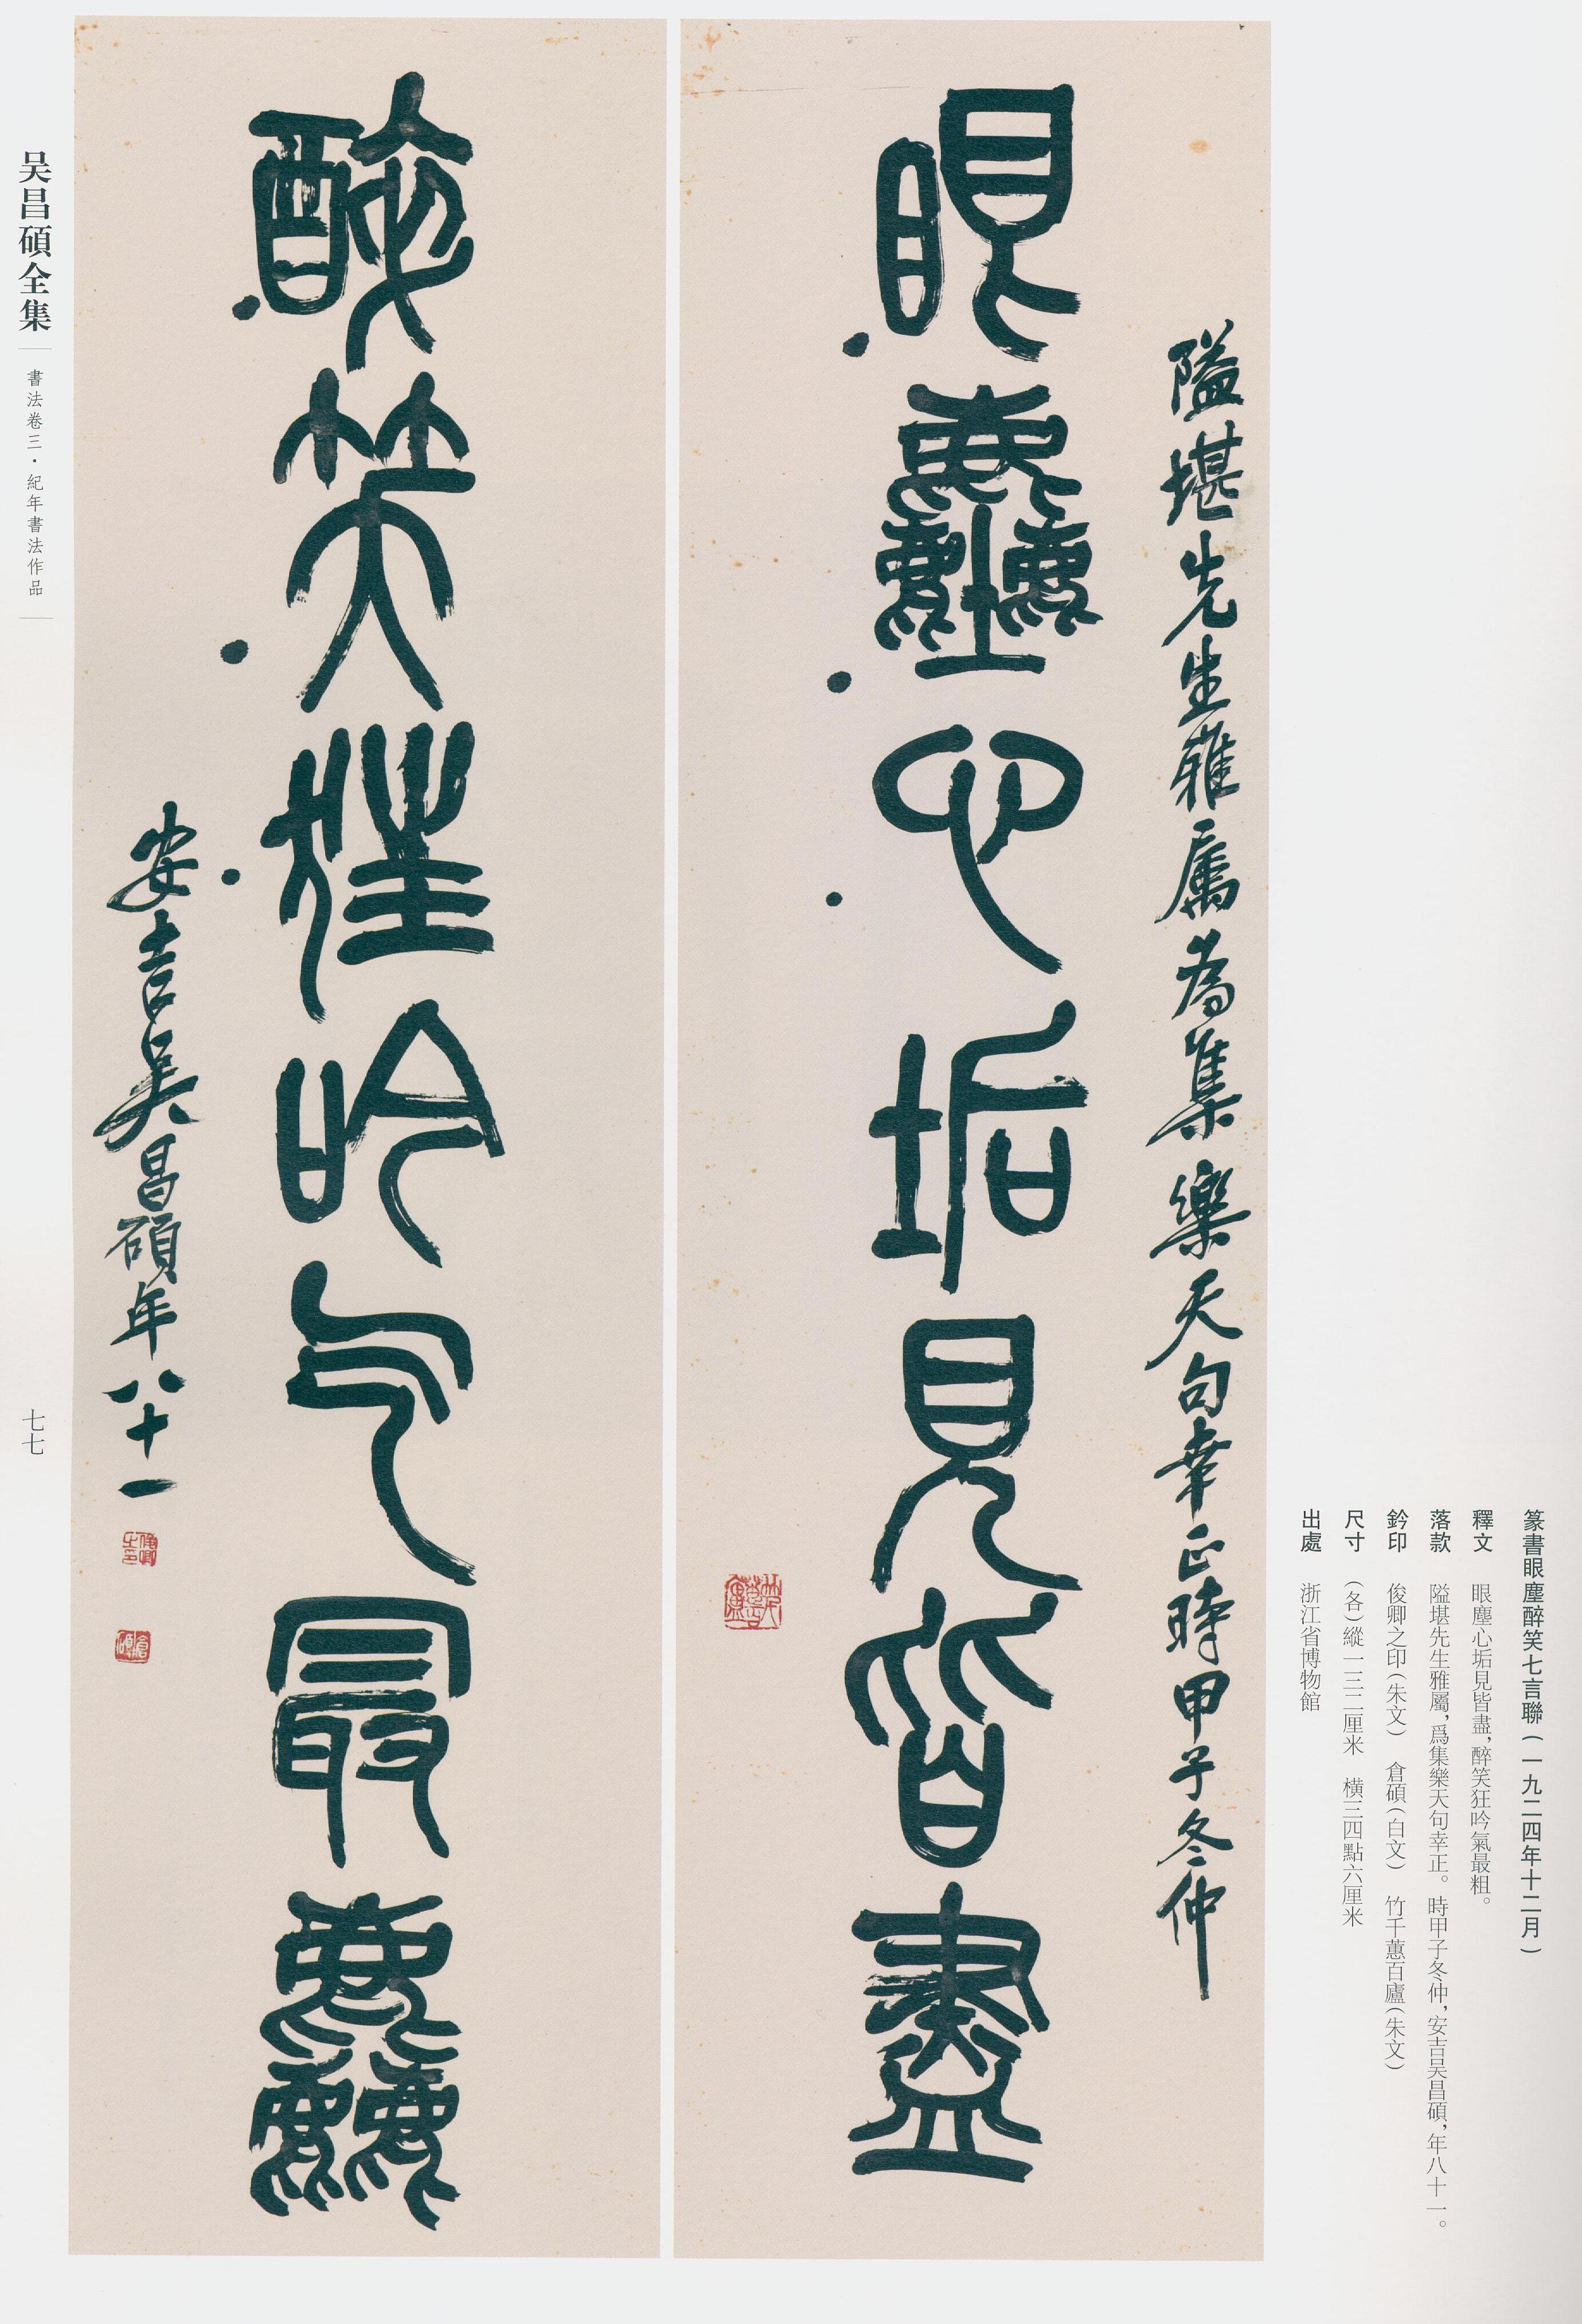 篆書眼塵醉笑七言聯（一九二四年十二月）
釋文　眼塵心垢見皆盡，醉笑狂吟氣最粗。
落款　隘堪先生雅屬，爲集樂天句幸正。時甲子冬仲，安吉吴昌碩，年八十一。
鈐印　俊卿之印（朱文）　倉碩（白文）　竹千蕙百廬（朱文）
尺寸　（各）縱一三二厘米　橫三四點六厘米
出處　浙江省博物館
隘堪先生雅屬為集樂天句幸正時甲子冬仲
眼塵心垢見皆盡
醉笑狂吟气最麤
安吉吴昌碩年八十一
俊卿之印
倉碩
吴昌碩全集
書法卷三·紀年書法作品
七七